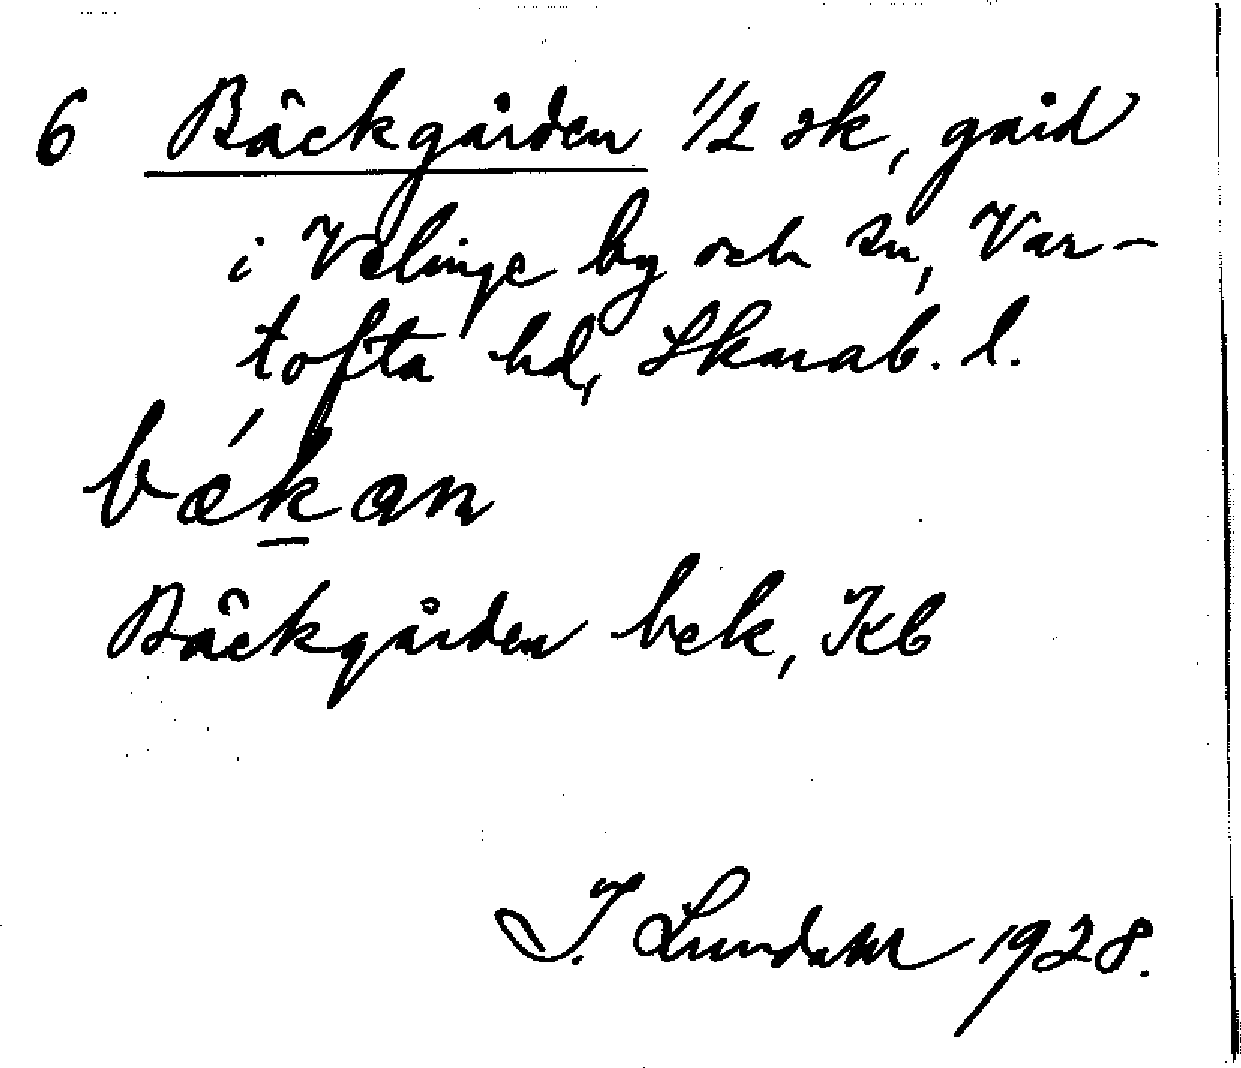 6 Bäckgården 1/2 sk, gård
i Velinge by och sn, Var-
tofta hd, Skarab. l.
bǽkan
Bäckgården bek, Kb
I. Lundahl 1928.